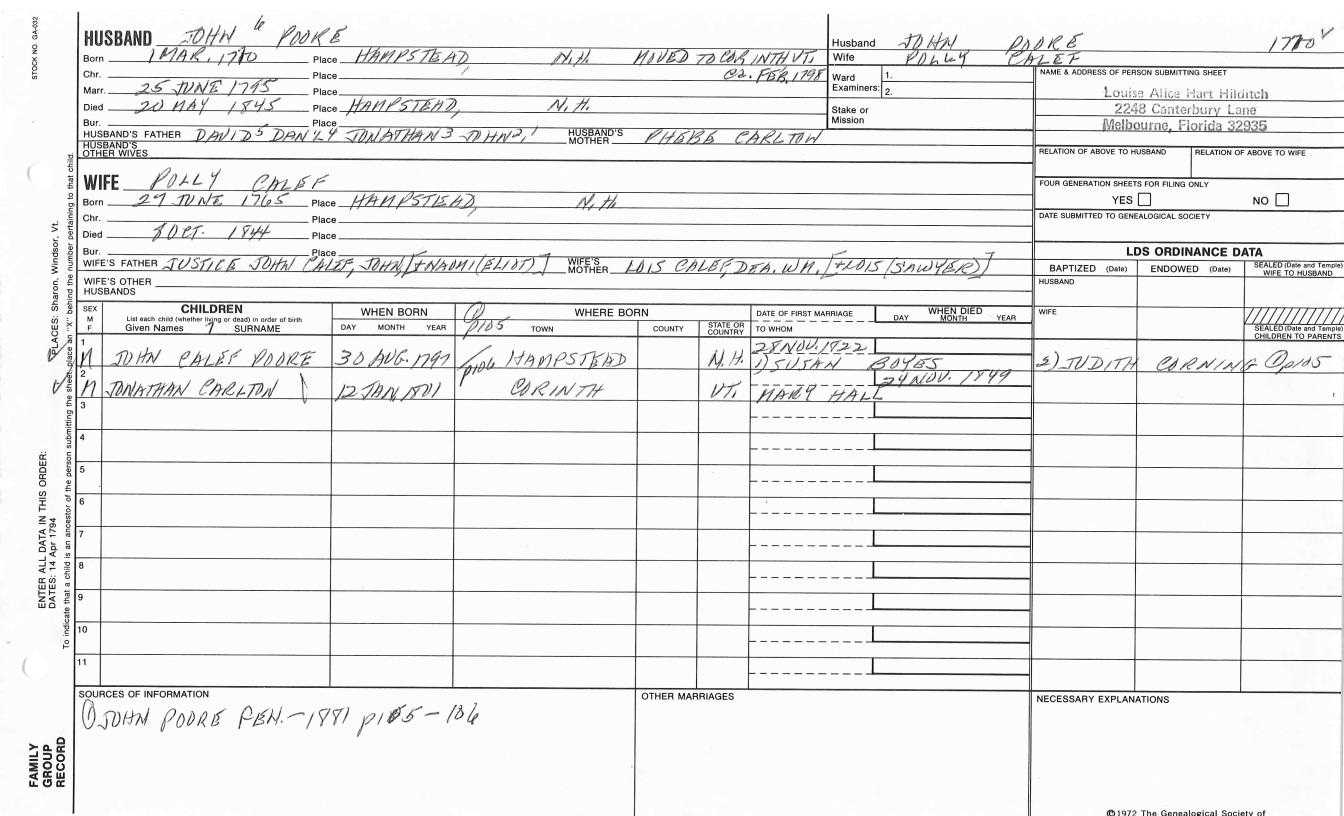 STOCK NO. GA-032
HUSBAND JOHN 6 POORE
Born 1 MAR. 1770 Place HAMPSTEAD, N.H. MOVED TO CORINTH VT.
Chr. Place CA. FEB, 1798
Marr. 25 JUNE 1795 Place
Died 20 MAY 1845 Place HAMPSTEAD, N.H.
Bur. Place
HUSBAND'S FATHER DAVID5 DAN'L4 JONATHAN3 JOHN2,1 HUSBAND'S MOTHER PHEBE CARLTON
HUSBAND'S OTHER WIVES
Husband JOHN POORE 1770
Wife POLLY CALEF
Ward 1.
Examiners: 2.
Stake or Mission
NAME & ADDRESS OF PERSON SUBMITTING SHEET
Louise Alice Hart Hilditch
2248 Canterbury Lane
Melbourne, Florida 32935
RELATION OF ABOVE TO HUSBAND RELATION OF ABOVE TO WIFE
FOUR GENERATION SHEETS FOR FILING ONLY
YES NO
DATE SUBMITTED TO GENEALOGICAL SOCIETY
WIFE POLLY CALEF
Born 29 JUNE 1765 Place HAMPSTEAD, N.H.
Chr. Place
Died 8 OCT. 1844 Place
Bur. Place
WIFE'S FATHER JUSTICE JOHN CALEF, JOHN, [+NAOMI (ELIOT)] WIFE'S MOTHER LOIS CALEF, DEA. WM. [+LOIS (SAWYER)]
WIFE'S OTHER HUSBANDS
LDS ORDINANCE DATA
BAPTIZED (Date) ENDOWED (Date) SEALED (Date and Temple) WIFE TO HUSBAND
HUSBAND
WIFE
SEALED (Date and Temple) CHILDREN TO PARENTS
SEX M F
CHILDREN
List each child (whether living or dead) in order of birth
Given Names 7 SURNAME
WHEN BORN
DAY MONTH YEAR
① p105 WHERE BORN
TOWN COUNTY STATE OR COUNTRY
DATE OF FIRST MARRIAGE
TO WHOM
WHEN DIED
DAY MONTH YEAR
1 28 NOV. 1822
M JOHN CALEF POORE 30 AUG. 1797 p106 HAMPSTEAD N.H. 1) SUSAN BOYES 2) JUDITH CORNING ① p105
2 24 NOV. 1849
M JONATHAN CARLTON 12 JAN 1801 CORINTH VT. MARY HALL
3
4
5
6
7
8
9
10
11
SOURCES OF INFORMATION
① JOHN POORE GEN. - 1881 p105 - 106
OTHER MARRIAGES
NECESSARY EXPLANATIONS
©1972 The Genealogical Society of
PLACES: Sharon, Windsor, Vt.
ENTER ALL DATA IN THIS ORDER:
DATES: 14 Apr 1794
To indicate that a child is an ancestor of the person submitting the sheet, place an "X" behind the number pertaining to that child.
FAMILY
GROUP
RECORD